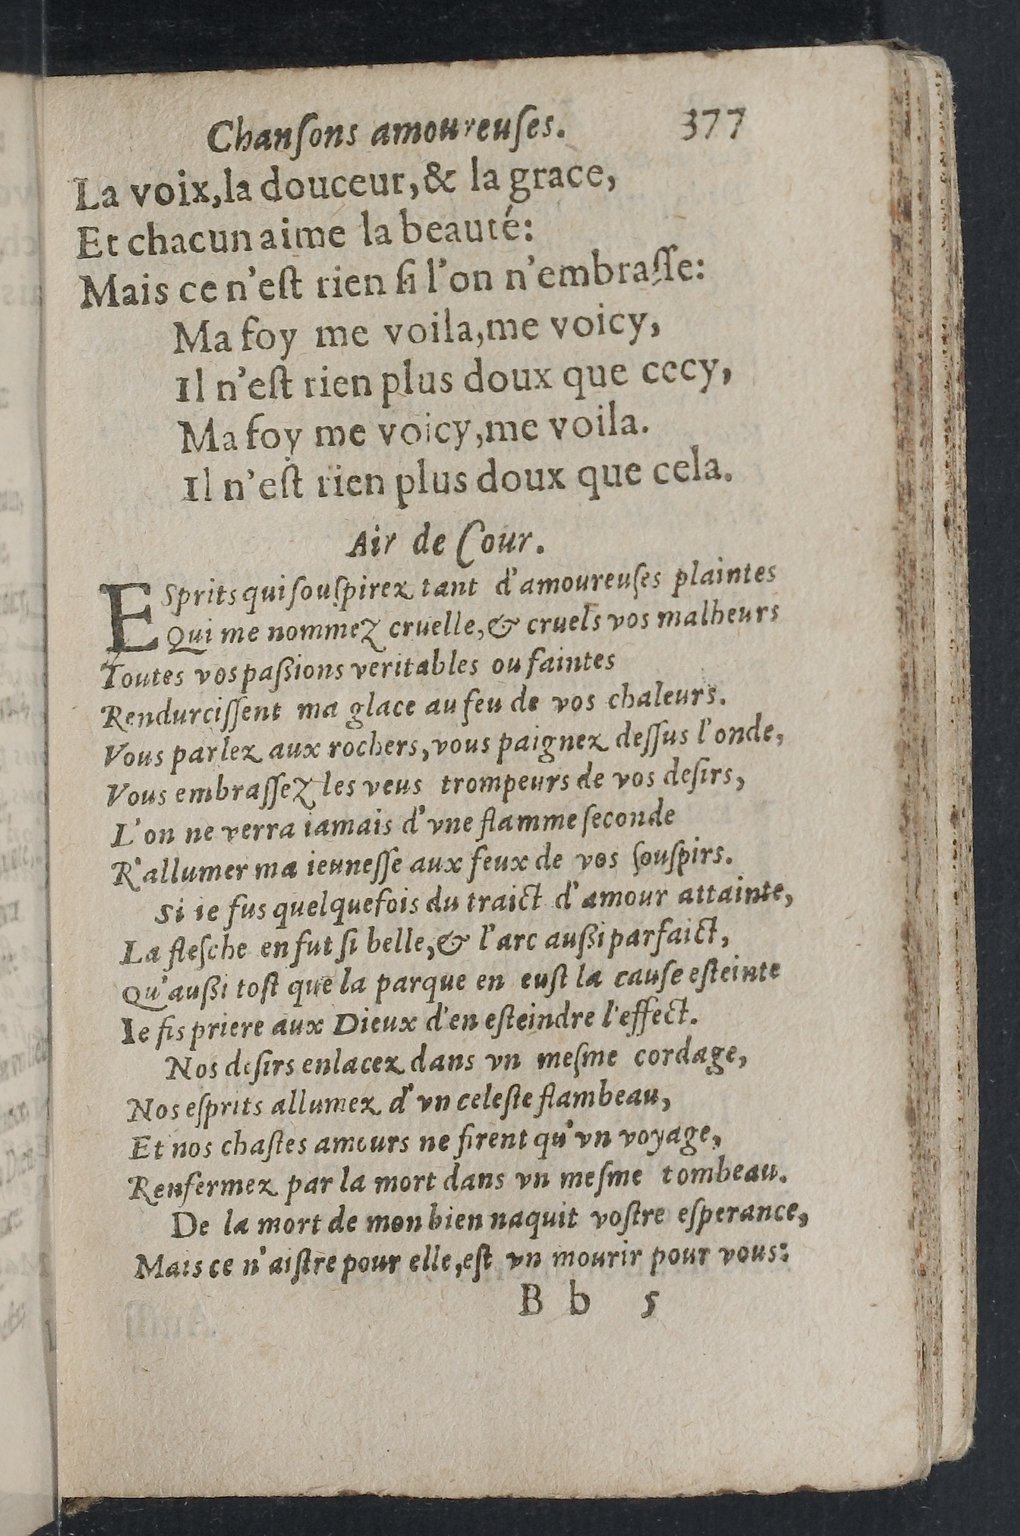 Chanſons amoureuſes. 377
La voix,la douceur,& la grace,
Et chacun aime la beauté:
Mais ce n'eſt rien ſi l'on n'embraſſe:
Ma foy me voila,me voicy,
Il n'eſt rien plus doux que cecy,
Ma foy me voicy,me voila.
Il n'eſt rien plus doux que cela.
Air de Cour.
ESprits qui ſouſpirez tant d'amoureuſes plaintes
Qui me nommez cruelle,& cruels vos malheurs
Toutes vos paßions veritables ou faintes
Rendurciſſent ma glace au feu de vos chaleurs.
Vous parlez aux rochers,vous paignez deſſus l'onde,
Vous embraſſez les veus trompeurs de vos deſirs,
L'on ne verra iamais d'vne flamme ſeconde
R'allumer ma ieuneſſe aux feux de vos ſouſpirs.
Si ie fus quelquefois du traict d'amour attainte,
La fleſche en fut ſi belle,& l'arc außi parfaict,
Qu'außi toſt que la parque en euſt la cauſe eſteinte
Ie fis priere aux Dieux d'en eſteindre l'effect.
Nos deſirs enlacez dans vn meſme cordage,
Nos eſprits allumez d'vn celeſte flambeau,
Et nos chaſtes amours ne firent qu'vn voyage,
Renfermez par la mort dans vn meſme tombeau.
De la mort de mon bien naquit voſtre eſperance,
Mais ce n'aiſtre pour elle,eſt vn mourir pour vous:
B b 5